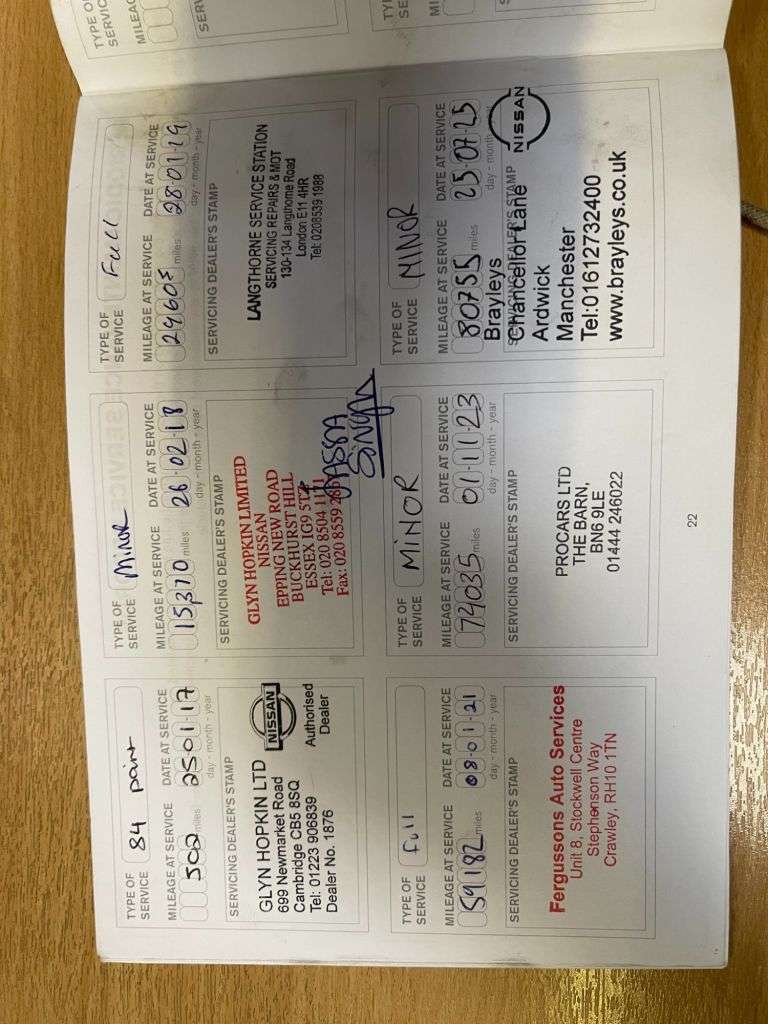 TYPE OF SERVICE 84 point
MILEAGE AT SERVICE DATE AT SERVICE
502 miles 25·01·17
day - month - year
SERVICING DEALER'S STAMP
GLYN HOPKIN LTD
699 Newmarket Road
Cambridge CB5 8SQ
Tel: 01223 906839
Dealer No. 1876
NISSAN
Authorised
Dealer
TYPE OF SERVICE Minor
MILEAGE AT SERVICE DATE AT SERVICE
15,370 miles 26·02·18
day - month - year
SERVICING DEALER'S STAMP
GLYN HOPKIN LIMITED
NISSAN
EPPING NEW ROAD
BUCKHURST HILL
ESSEX IG9 5T
Tel: 020 8504 11
Fax: 020 8559
TYPE OF SERVICE Full
MILEAGE AT SERVICE DATE AT SERVICE
24605 miles 28·01·19
day - month - year
SERVICING DEALER'S STAMP
LANGTHORNE SERVICE STATION
SERVICING REPAIRS & MOT
130-134 Langthorne Road
London E11 4HR
Tel: 0208539 1988
TYPE OF SERVICE Full
MILEAGE AT SERVICE DATE AT SERVICE
59182 miles 08·01·21
day - month - year
SERVICING DEALER'S STAMP
Fergussons Auto Services
Unit 8, Stockwell Centre
Stephenson Way
Crawley, RH10 1TN
TYPE OF SERVICE MINOR
MILEAGE AT SERVICE DATE AT SERVICE
74035 miles 01·11·23
day - month - year
SERVICING DEALER'S STAMP
PROCARS LTD
THE BARN,
BN6 9LE
01444 246022
TYPE OF SERVICE MINOR
MILEAGE AT SERVICE DATE AT SERVICE
80755 miles 25·07·25
day - month - year
SERVICING DEALER'S STAMP
NISSAN
Brayleys
Chancellor Lane
Ardwick
Manchester
Tel:01612732400
www.brayleys.co.uk
22